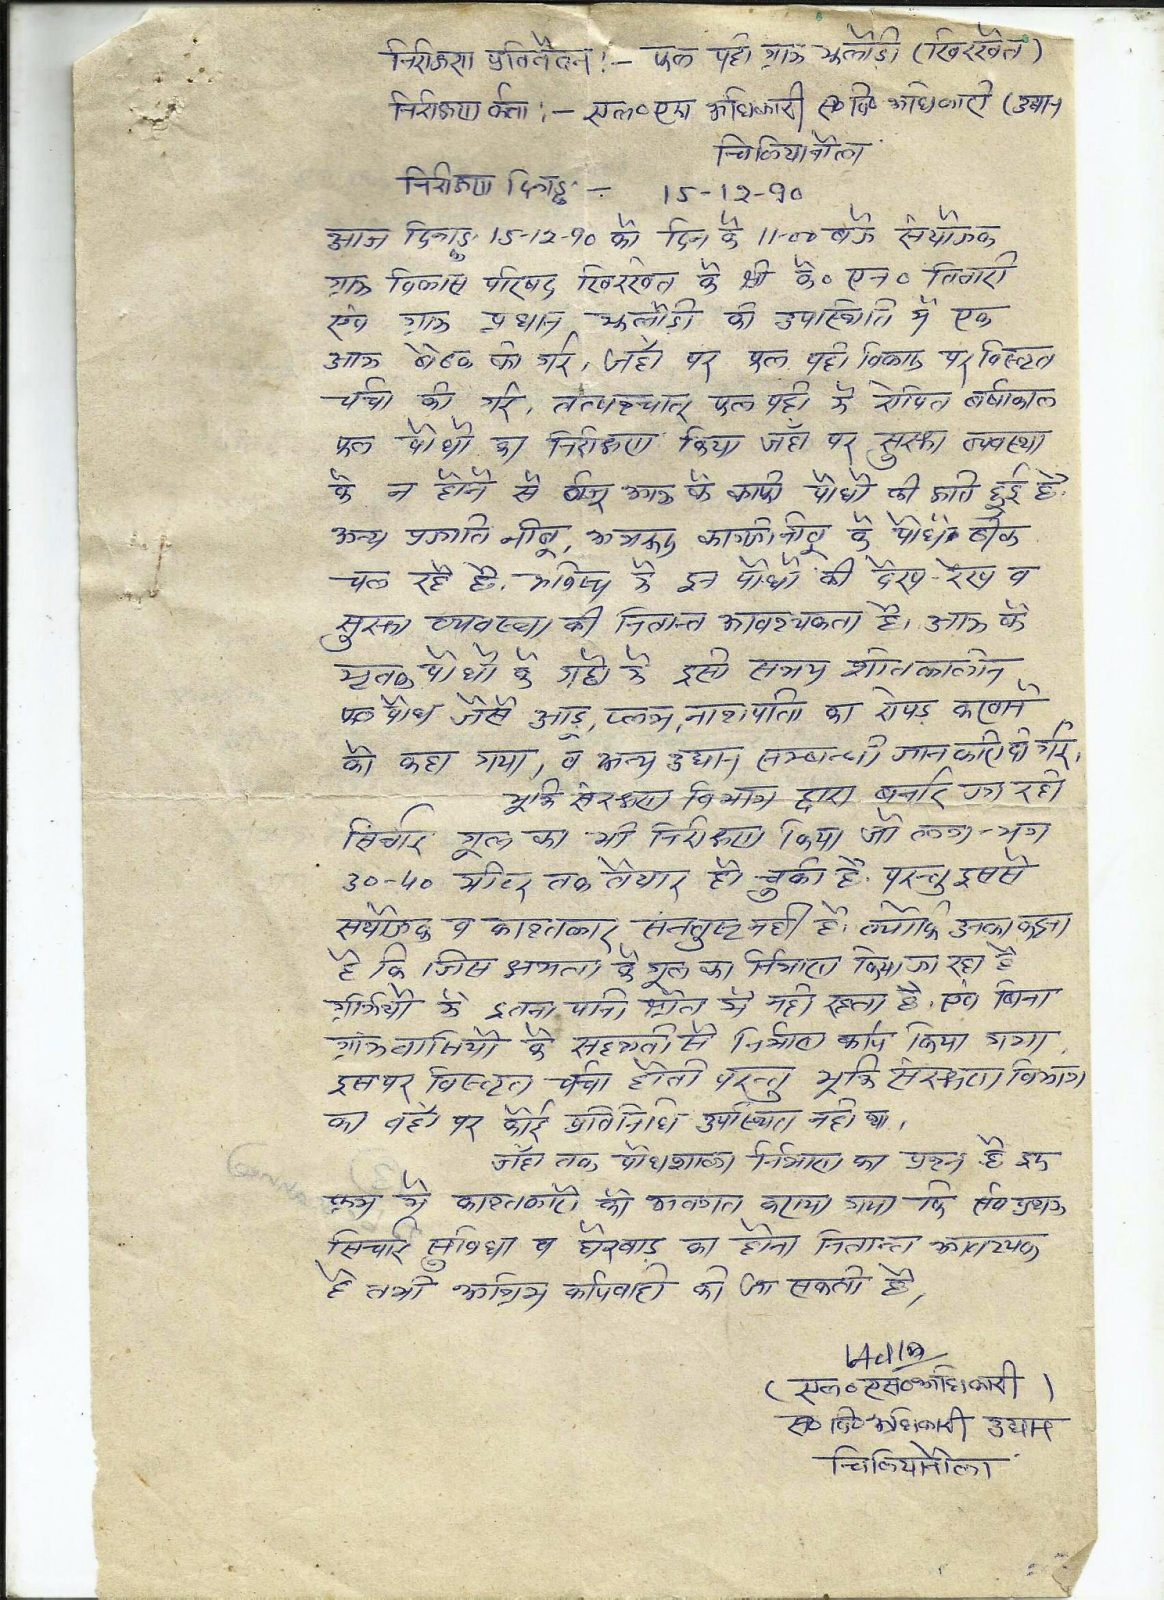 निरीक्षण प्रतिवेदन :- फल पट्टी ग्राम झलोड़ी (खिरखेत)
निरीक्षण कर्ता :- एल० एस अधिकारी स० वि० अधिकारी (उद्यान
चिलियानौला
निरीक्षण दिनाङ्क - 15-12-90
आज दिनाङ्क 15-12-90 को दिन के 11-00 बजे संयोजक
ग्राम विकास परिषद खिरखेत के श्री के० एन० तिवारी
एंव ग्राम प्रधान झलोड़ी की उपस्थिति में एक
आम बैठक की गई, जहाँ पर फल पट्टी विकास पर विस्तृत
चर्चा की गई, तत्पश्चात् फल पट्टी में रोपित बर्षाकाल
फल पौधों का निरीक्षण किया जहाँ पर सुरक्षा व्यवस्था
के न होने से बीजू आम के काफी पौधों की क्षति हुई है.
अन्य प्रजाति नीबू, अमरूद कागजी नीबू के पौधे ठीक
चल रहे है. भविष्य में इन पौधों की देख-रेख व
सुरक्षा व्यवस्था की नितान्त आवश्यकता है। आम के
मृतक पौधों के गड्ढों में इसी समय शीतकालीन
फल पौध जैसे आड़ू, प्लम, नाशपाती का रोपड़ करवाने
को कहा गया, व अन्य उद्यान सम्बन्धी जानकारी दी गई,
भूमि संरक्षण विभाग द्वारा बनाई जा रही
सिंचाई गूल का भी निरीक्षण किया जो लग-भग
30-40 मीटर तक तैयार हो चुकी है. परन्तु इससे
संयोजक व काश्तकार सन्तुष्ट नही है। क्योंकि उनका कहना
है कि जिस क्षमता के गूल का निर्माण किया जा रहा है
गर्मियों में इतना पानी श्रोत में नही रहता है. एंव बिना
ग्रामवासियों के सहमती से निर्माण कार्य किया गया,
इस पर विस्तृत चर्चा होती परन्तु भूमि संरक्षण विभाग
का वहाँ पर कोई प्रतिनिधि उपस्थित नही था,
जहाँ तक पौधशाला निर्माण का प्रश्न है इस
क्रम में काश्तकारों को अवगत कराया गया कि सर्वप्रथम
सिंचाई सुविधा व घेरवाड़ का होना नितान्त आवश्यक
है तभी अग्रिम कार्यवाही की जा सकती है,
(एल० एस० अधिकारी)
स० वि० अधिकारी उद्यान
चिलियानौला